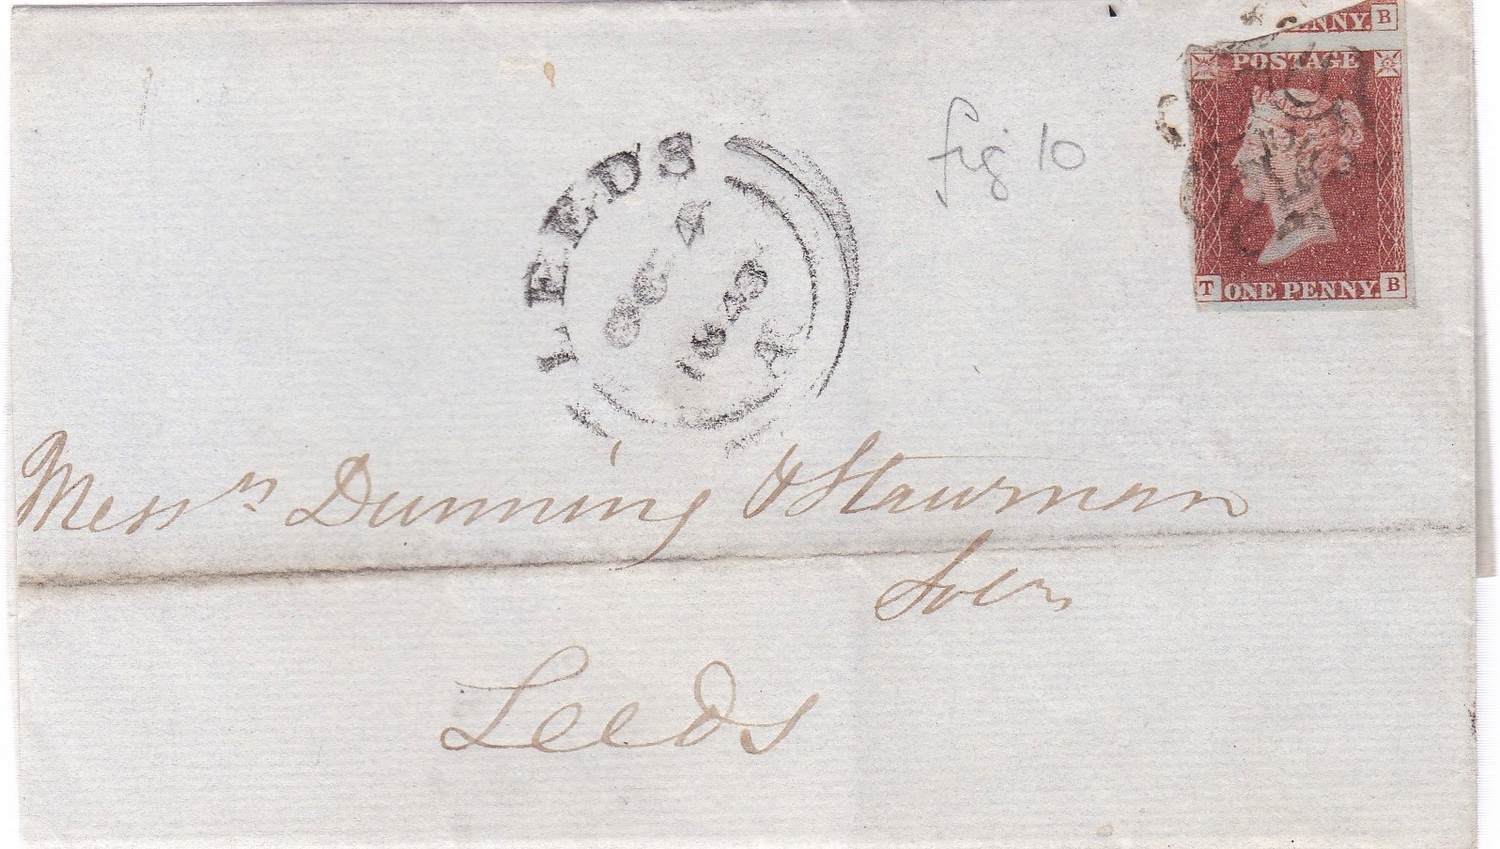 NNY. B
POSTAGE
T ONE PENNY. B
fig 10
LEEDS
OC 4
1843
A
Messrs Dunning & Stawman
Solrs
Leeds